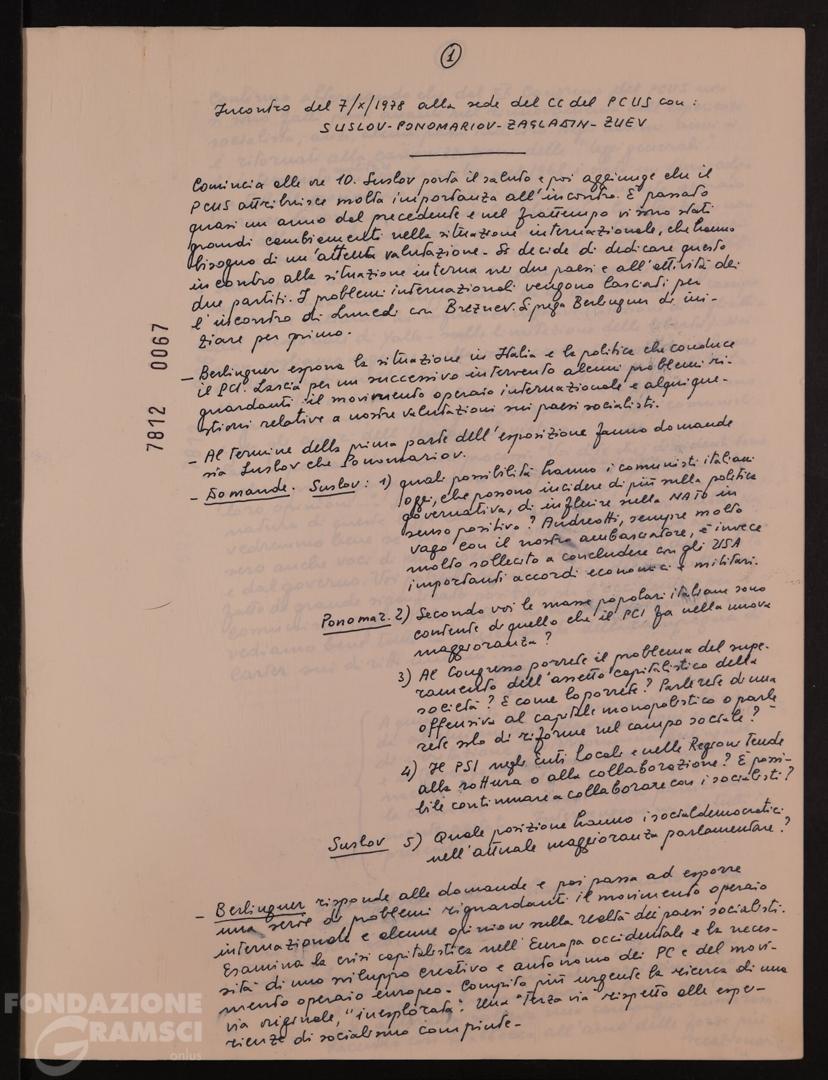 1
Incontro del 7/X/1978 alla sede del CC del PCUS con:
SUSLOV-PONOMARIOV-ZAGLADIN-ZUEV
Comincia alle ore 10. Suslov porta il saluto e poi aggiunge che il
PCUS attribuisce molta importanza all'incontro. È passato
quasi un anno dal precedente e nel frattempo vi sono stati
grandi cambiamenti nella situazione internazionale, che hanno
bisogno di un'attenta valutazione. Si decide di dedicare questo
incontro alla situazione interna nei due paesi e all'attività dei
due partiti. I problemi internazionali vengono lasciati per
l'incontro di Lunedì con Breznev. Si prega Berlinguer di ini-
ziare per primo.
- Berlinguer espone la situazione in Italia e la politica che conduce
il PCI. Lascia per un successivo intervento alcuni problemi ri-
guardanti il movimento operaio internazionale e alcune que-
stioni relative a nostre valutazioni sui paesi socialisti.
- Al termine della prima parte dell'esposizione fanno domande
sia Suslov che Ponomariov.
- Domande. Suslov: 1) quali possibilità hanno i comunisti italiani
oggi, che possono incidere di più sulla politica
governativa, di influire sulla NATO in
senso positivo? Andreotti, sempre molto
vago con il nostro ambasciatore, è invece
molto sollecito a concludere con gli USA
importanti accordi economici e militari.
Ponomar. 2) Secondo voi le masse popolari italiane sono
contente di quello che il PCI fa nella nuova
maggioranza?
3) Al Congresso porrete il problema del supe-
ramento dell'assetto capitalistico della
società? E come lo porrete? Parlerete di una
offensiva al capitale monopolistico o parle
rete solo di riforme nel campo sociale?
4) Il PSI negli Enti Locali e nelle Regioni tende
alla rottura o alla collaborazione? È possi-
bile continuare a collaborare con i socialisti?
Suslov 5) Quale posizione hanno i socialdemocratici
nell'attuale maggioranza parlamentare?
- Berlinguer risponde alle domande e poi passa ad esporre
una serie di problemi riguardanti il movimento operaio
internazionale e alcune opinioni sulla realtà dei paesi socialisti.
Esamina la crisi capitalistica nell'Europa occidentale e la neces-
sità di uno sviluppo creativo e autonomo dei PC e del movi-
mento operaio europeo. Compito più urgente la ricerca di una
via originale, "inesplorata". Una "terza via" rispetto alle espe-
rienze di socialismo compiute.
7812 0067
FONDAZIONE
GRAMSCI
onlus